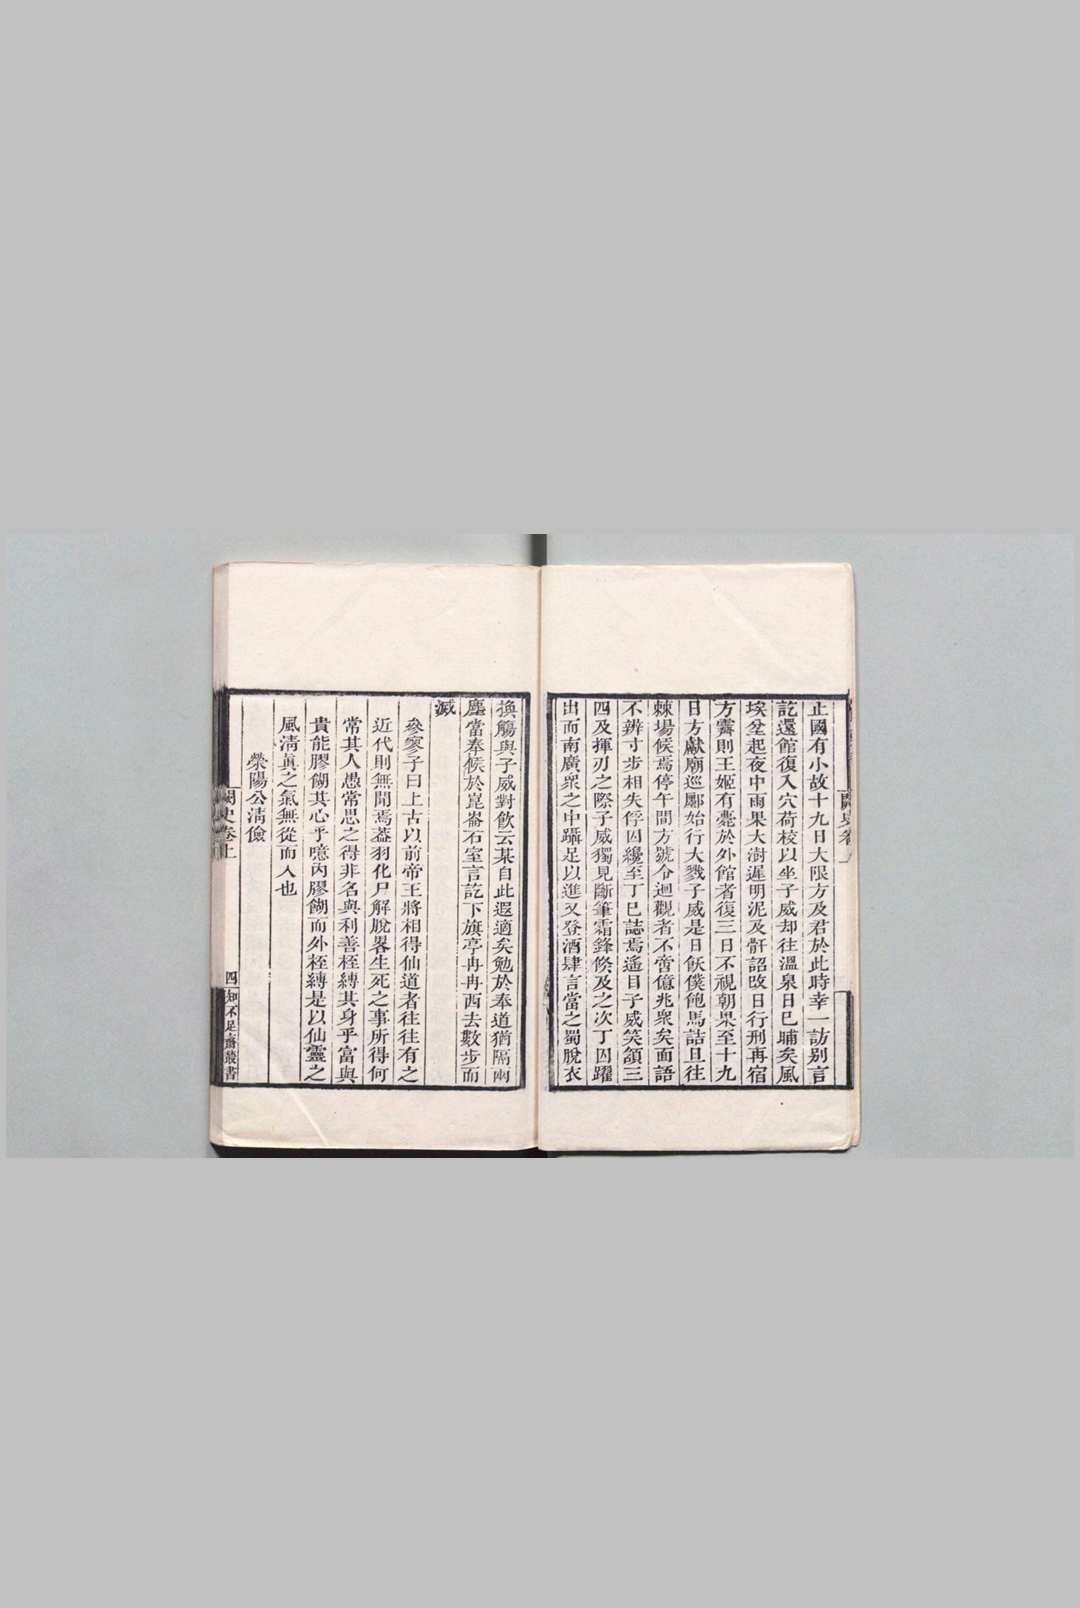 止國有小故十九日大限方及君於此時幸一訪别言
訖還館復入穴荷校以坐子威却往溫泉日已晡矣風
埃坌起夜中雨果大澍遲明泥及骭詔改日行刑再宿
方霽則王姬有薨於外館者復三日不視朝果至十九
日方獻廟巡鄽始行大戮子威是日飫僕飽馬詰旦往
棘場候焉停午間方號令迴觀者不啻億兆衆矣面語
不辨寸步相失俘囚纔至丁已誌焉遙目子威笑頷三
四及揮刃之際子威獨見斷筆霜鋒倐及之次丁囚躍
出而南廣衆之中躡足以進又登酒肆言當之蜀脫衣
換觴與子威對飲云某自此遐適矣勉於奉道猶隔兩
塵當奉候於崑崙石室言訖下旗亭冉冉西去數步而
滅
參寥子曰上古以前帝王將相得仙道者往往有之
近代則無聞焉葢羽化尸解脫畧生死之事所得何
常其人愚常思之得非名與利善桎縛其身乎富與
貴能膠餬其心乎噫內膠餬而外桎縛是以仙靈之
風清眞之氣無從而入也
滎陽公清儉
闕史卷上
四
知不足齋叢書